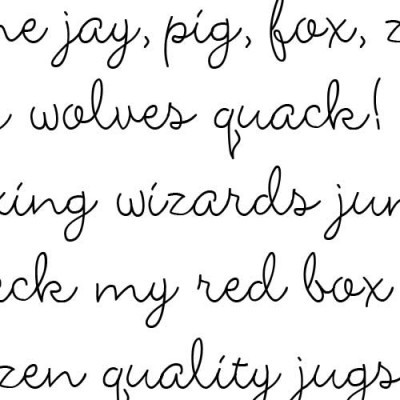 he jay, pig, fox, z
wolves quack!
xing wizards jum
eck my red box
zen quality jugs